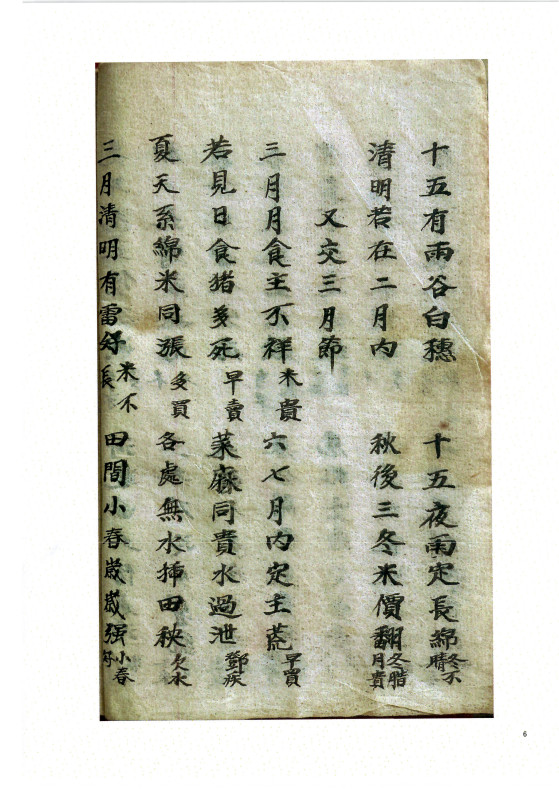 十五有雨谷白穗 十五夜雨定長綿 冬不晴
清明若在二月内 秋後三冬米價翻 冬腊月貴
又交三月節
三月月食主不祥 米貴 六七月内定主荒 早買
若見日食猪多死 早賣 菜麻同貴水過泄 鄧疾
夏天系綿米同漲 多買 各處無水揷田秧 欠水
三月清明有雷好 米不長 田間小春歲歲强 小春好
6